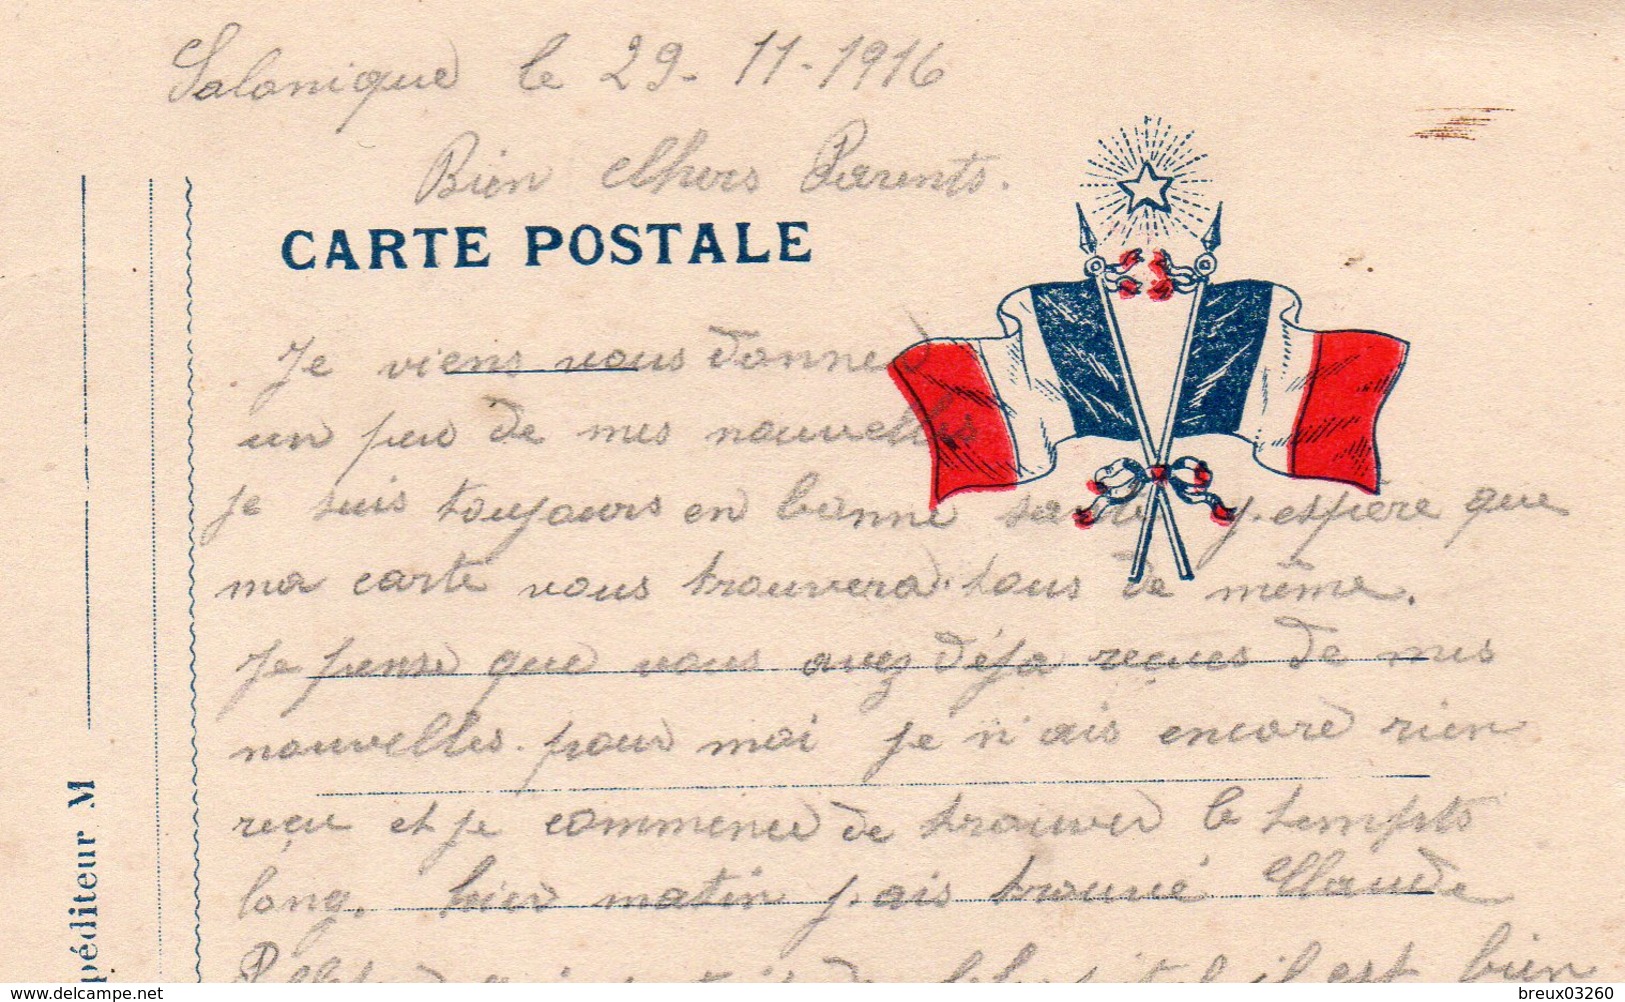 Salonique le 29-11-1916
Bien Chers Parents.
CARTE POSTALE
Je viens vous donner
un peu de mes nouvelles
je suis toujours en bonne santé j.espère que
ma carte vous trouvera tous de même.
Je pense que vous avez déja reçues de mes
nouvelles. pour moi je n'ais encore rien
reçu et je commence de trouver le tempts
long. hier matin j.ais trouvé Claude
il est bien
péditeur M
www.delcampe.net
breux03260